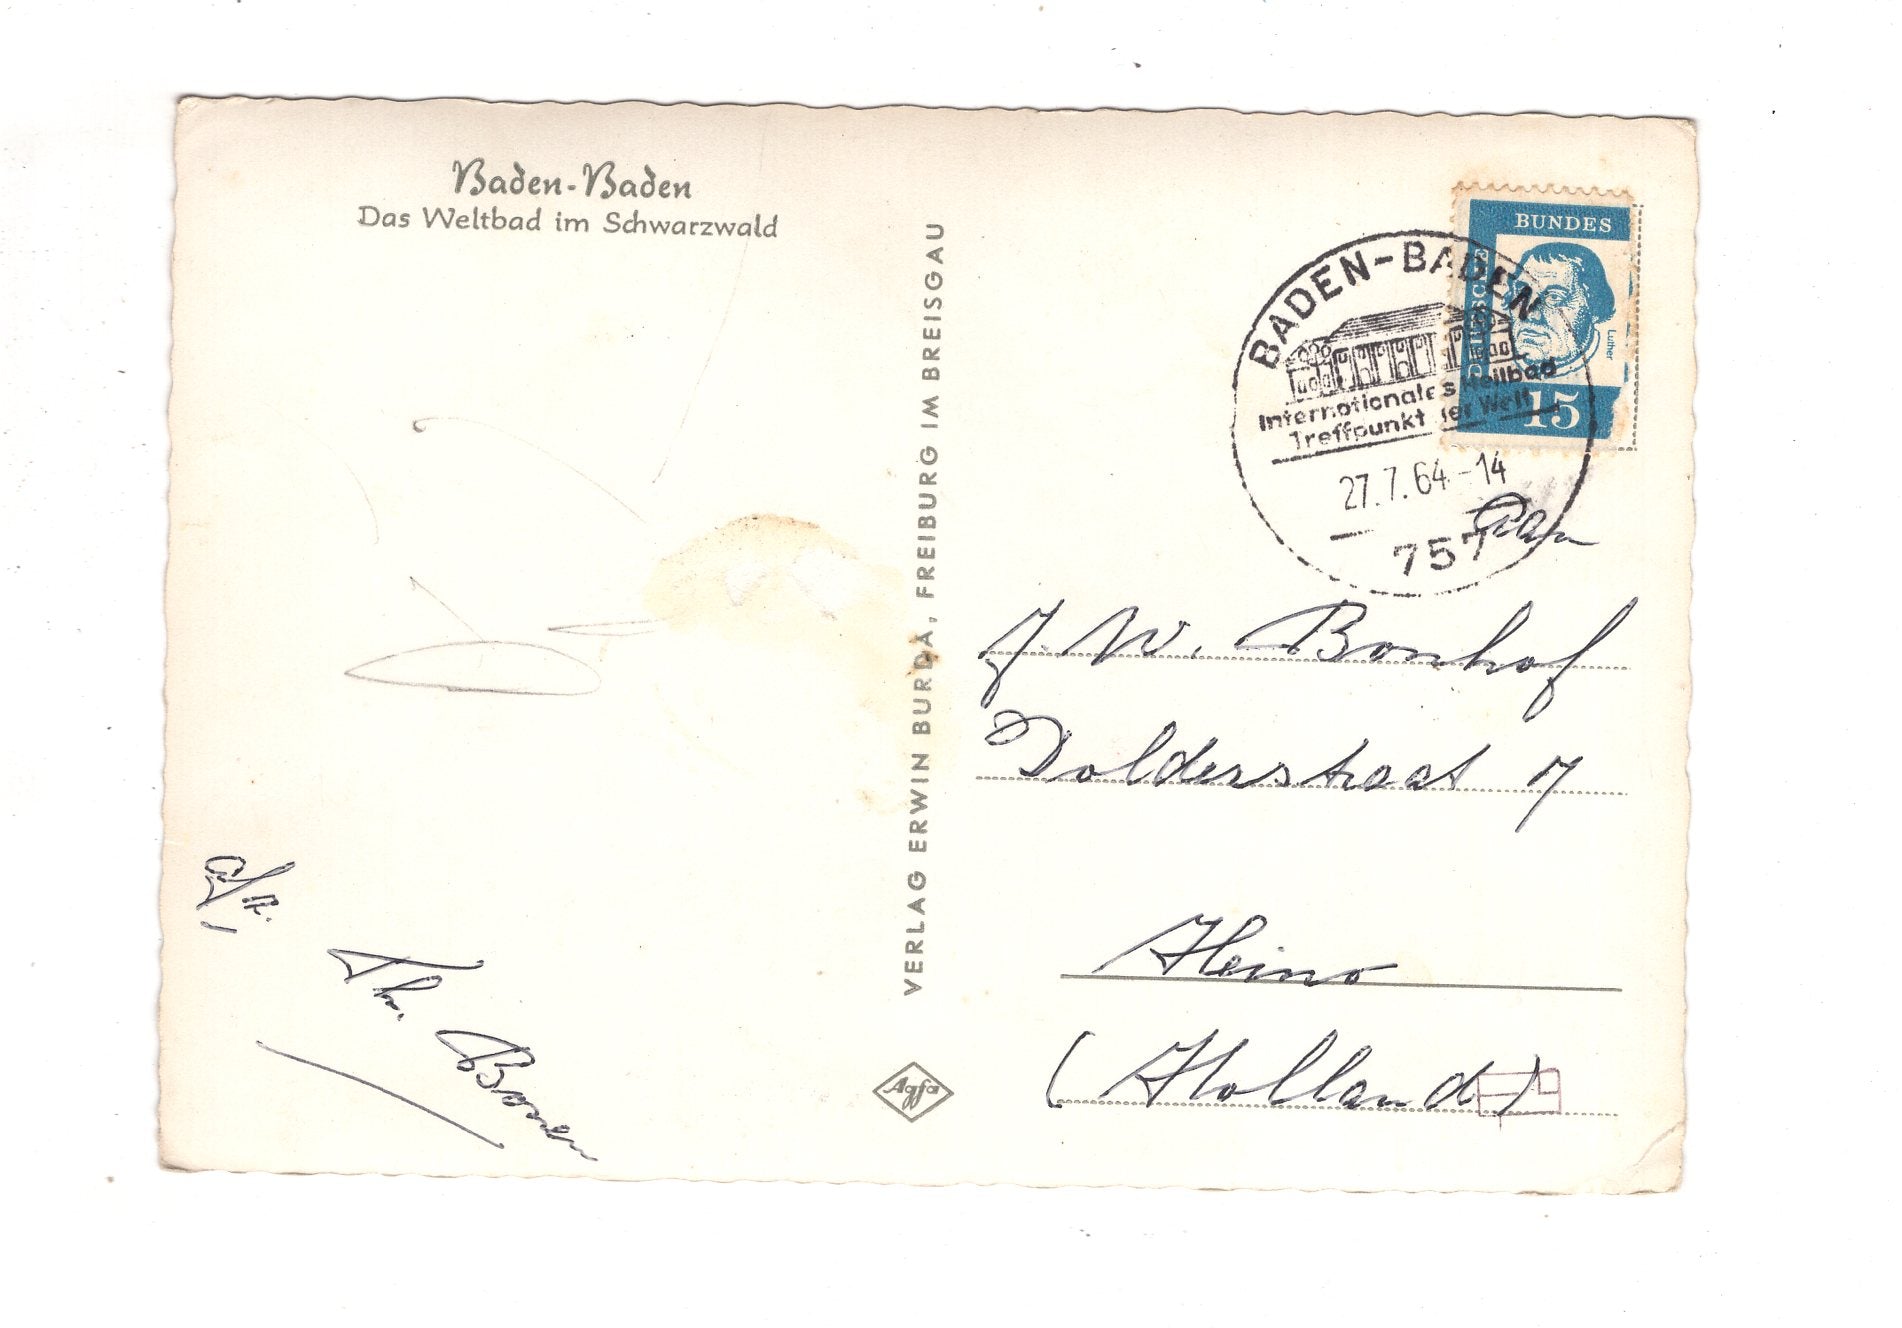 Baden-Baden
Das Weltbad im Schwarzwald
VERLAG ERWIN BURDA, FREIBURG IM BREISGAU
Agfa
BUNDES
DEUTSCHE
Luther
15
BADEN-BADEN
Internationales Heilbad
Treffpunkt der Welt
27.7.64-14
757
Aan
J. W. Bonhof
Dolderstraat 7
Heino
(Holland)
Afz.
Th.